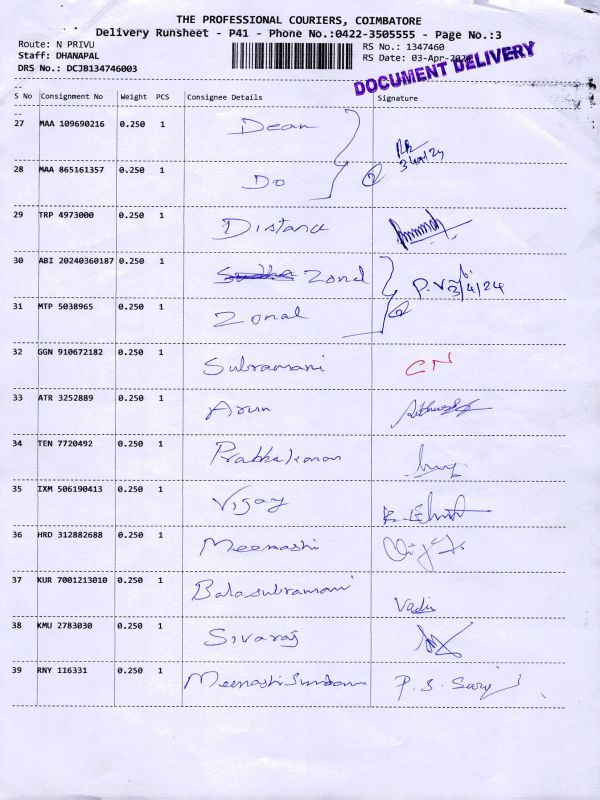 THE PROFESSIONAL COURIERS, COIMBATORE
Delivery Runsheet - P41 - Phone No.:0422-3505555 - Page No.:3
Route: N PRIVU RS No.: 1347460
Staff: DHANAPAL RS Date: 03-Apr-
DRS No.: DCJB134746003
DOCUMENT DELIVERY
S No Consignment No Weight PCS Consignee Details Signature
27 MAA 109690216 0.250 1 Dean
28 MAA 865161357 0.250 1 Do 2
29 TRP 4973000 0.250 1
30 ABI 20240360187 0.250 1 Zonal P.V 3/4/24
31 MTP 5038965 0.250 1 Zonal 2
32 GGN 910672182 0.250 1 Subramani CN
33 ATR 3252889 0.250 1 Arun
34 TEN 7720492 0.250 1 Prabhakaran
35 IXM 506190413 0.250 1 Vijay
36 HRD 312882688 0.250 1 Meenashi
37 KUR 7001213010 0.250 1 Balasubramani Vadi
38 KMU 2783030 0.250 1 Sivaraj
39 RNY 116331 0.250 1 P. S.